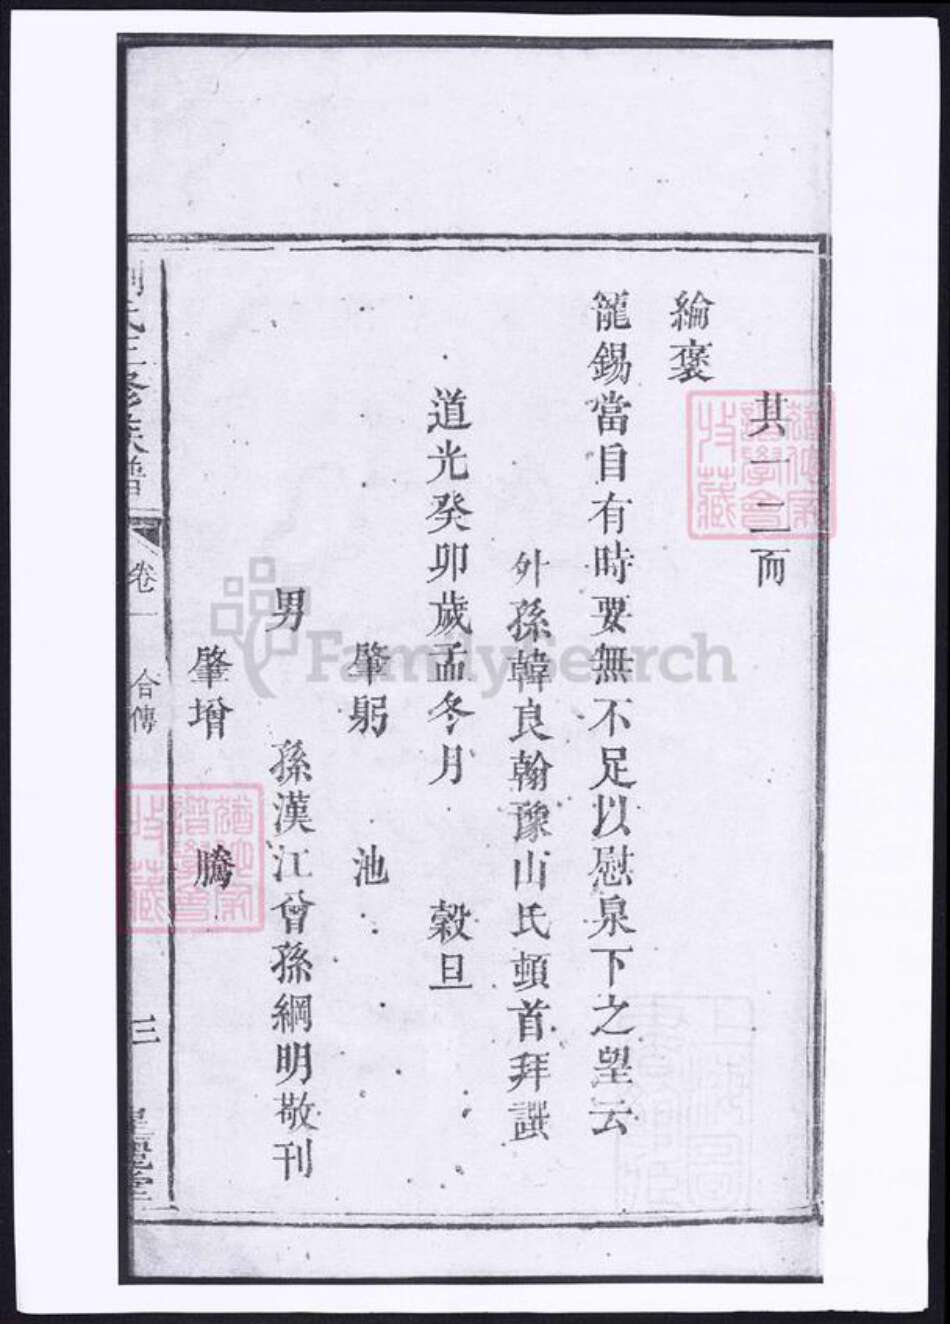 其一二而
綸褒
寵錫當自有時要無不足以慰泉下之望云
外孫韓良翰豫山氏頓首拜譔
道光癸卯歲孟冬月 穀旦
肇躬 池
男 孫漢江曾孫綱明敬刊
肇增 騰
氏三修族譜 卷一 合傳 三
FamilySearch